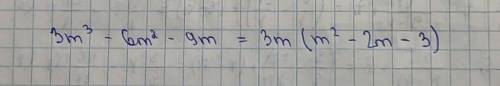 3m³ - 6m² - 9m = 3m (m² - 2m - 3)